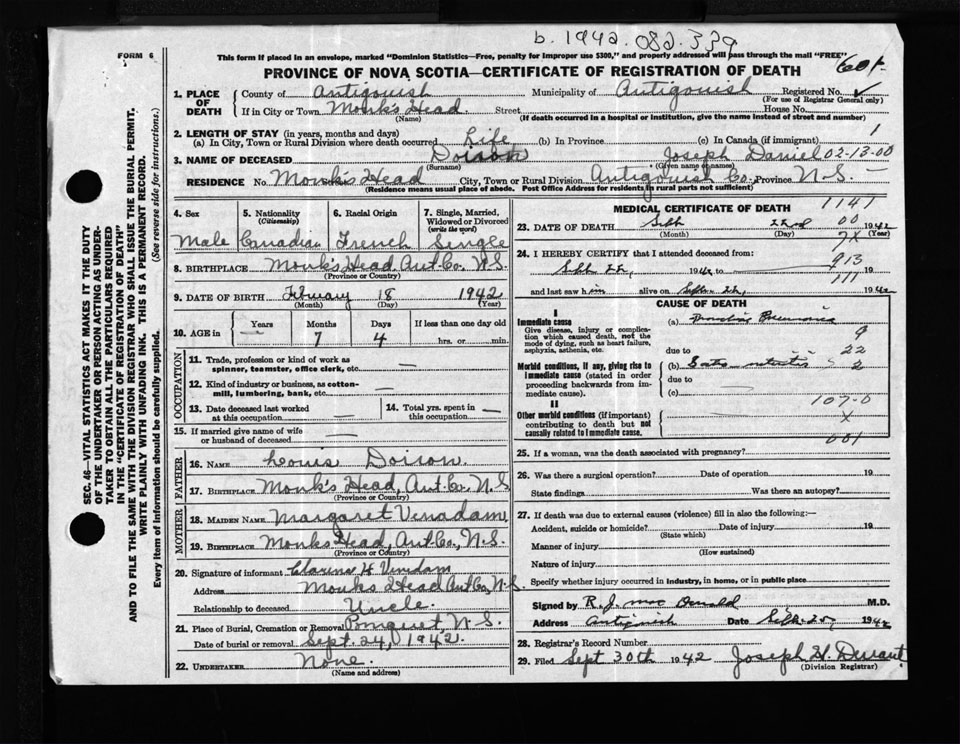 b. 1942. 082.339
FORM 6
This form if placed in an envelope, marked "Dominion Statistics—Free, penalty for improper use $300," and properly addressed will pass through the mail "FREE"
PROVINCE OF NOVA SCOTIA—CERTIFICATE OF REGISTRATION OF DEATH
1. PLACE OF DEATH
County of Antigonish Municipality of Antigonish Registered No.
(For use of Registrar General only)
If in City or Town Monk's Head. Street House No.
(Name) (If death occurred in a hospital or institution, give the name instead of street and number)
2. LENGTH OF STAY (in years, months and days)
(a) In City, Town or Rural Division where death occurred Life (b) In Province (c) In Canada (if immigrant) 1
3. NAME OF DECEASED Doiron Joseph Daniel 02-13-00
(Surname) (Given name or names)
RESIDENCE No. Monk's Head City, Town or Rural Division Antigonish Co. Province N.S.
(Residence means usual place of abode. Post Office Address for residents in rural parts not sufficient)
4. Sex
Male
5. Nationality
(Citizenship)
Canadian
6. Racial Origin
French
7. Single, Married, Widowed or Divorced
(write the word)
Single
8. BIRTHPLACE Monk's Head Ant Co. N.S.
(Province or Country)
9. DATE OF BIRTH February 18 1942
(Month) (Day) (Year)
10. AGE in
Years Months Days If less than one day old
— 7 4 hrs. or min.
OCCUPATION
11. Trade, profession or kind of work as
spinner, teamster, office clerk, etc. —
12. Kind of industry or business, as cotton-
mill, lumbering, bank, etc. —
13. Date deceased last worked
at this occupation —
14. Total yrs. spent in
this occupation —
15. If married give name of wife
or husband of deceased —
FATHER
16. NAME Louis Doiron.
17. BIRTHPLACE Monk's Head, Ant. Co. N.S
(Province or Country)
MOTHER
18. MAIDEN NAME Margaret Venadam
19. BIRTHPLACE Monks Head, Ant Co., N.S.
(Province or Country)
20. Signature of informant Clarence H Venidam
Address Monks Head Ant Co, N.S.
Relationship to deceased Uncle.
21. Place of Burial, Cremation or Removal Pomquet, N.S.
Date of burial or removal Sept. 24, 1942.
22. UNDERTAKER None.
(Name and address)
MEDICAL CERTIFICATE OF DEATH
1141
23. DATE OF DEATH Sept 22nd 1942
00
(Month) (Day) (Year)
24. I HEREBY CERTIFY that I attended deceased from:
913
Sept 22, 1942 to 19
111
and last saw him alive on Sept 22, 1942
CAUSE OF DEATH
I
Immediate cause
Give disease, injury or complication which caused death, not the mode of dying, such as heart failure, asphyxia, asthenia, etc.
(a) Pneumonia
9
due to 22
Morbid conditions, if any, giving rise to immediate cause (stated in order proceeding backwards from immediate cause).
(b) 2
due to
(c)
107-0
II
Other morbid conditions (if important) contributing to death but not causally related to immediate cause.
X
001
25. If a woman, was the death associated with pregnancy?
26. Was there a surgical operation? Date of operation 19
State findings Was there an autopsy?
27. If death was due to external causes (violence) fill in also the following:—
Accident, suicide or homicide? Date of injury 19
(State which)
Manner of injury
(How sustained)
Nature of injury
Specify whether injury occurred in industry, in home, or in public place
Signed by R. J. Mac Donald M.D.
Address Antigonish Date Sept. 25, 1942
28. Registrar's Record Number
29. Filed Sept 30th 1942 Joseph H. Durant
(Division Registrar)
SEC. 46—VITAL STATISTICS ACT MAKES IT THE DUTY
OF THE UNDERTAKER OR PERSON ACTING AS UNDER-
TAKER TO OBTAIN ALL THE PARTICULARS REQUIRED
IN THE "CERTIFICATE OF REGISTRATION OF DEATH"
AND TO FILE THE SAME WITH THE DIVISION REGISTRAR WHO SHALL ISSUE THE BURIAL PERMIT.
WRITE PLAINLY WITH UNFADING INK. THIS IS A PERMANENT RECORD.
Every item of information should be carefully supplied. (See reverse side for instructions.)